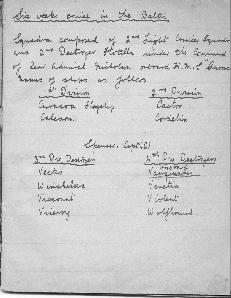 Six weeks cruise in the Baltic
Squadron composed of 2nd Light Cruiser Squadron
and 2nd Destroyer Flotilla under the Command
of Rear Admiral Nicholson aboard H.M.S.
Names of ships as follows
1st Division 2nd Division
Curacoa Flagship Castor
Caledon Cordelia
Spenser. Capt (D)
3rd Div Destroyers 4th Div Destroyers
Vectis Vanquisher
Winchelsea Venetia
Viscount Violent
Viceroy Wolfhound.